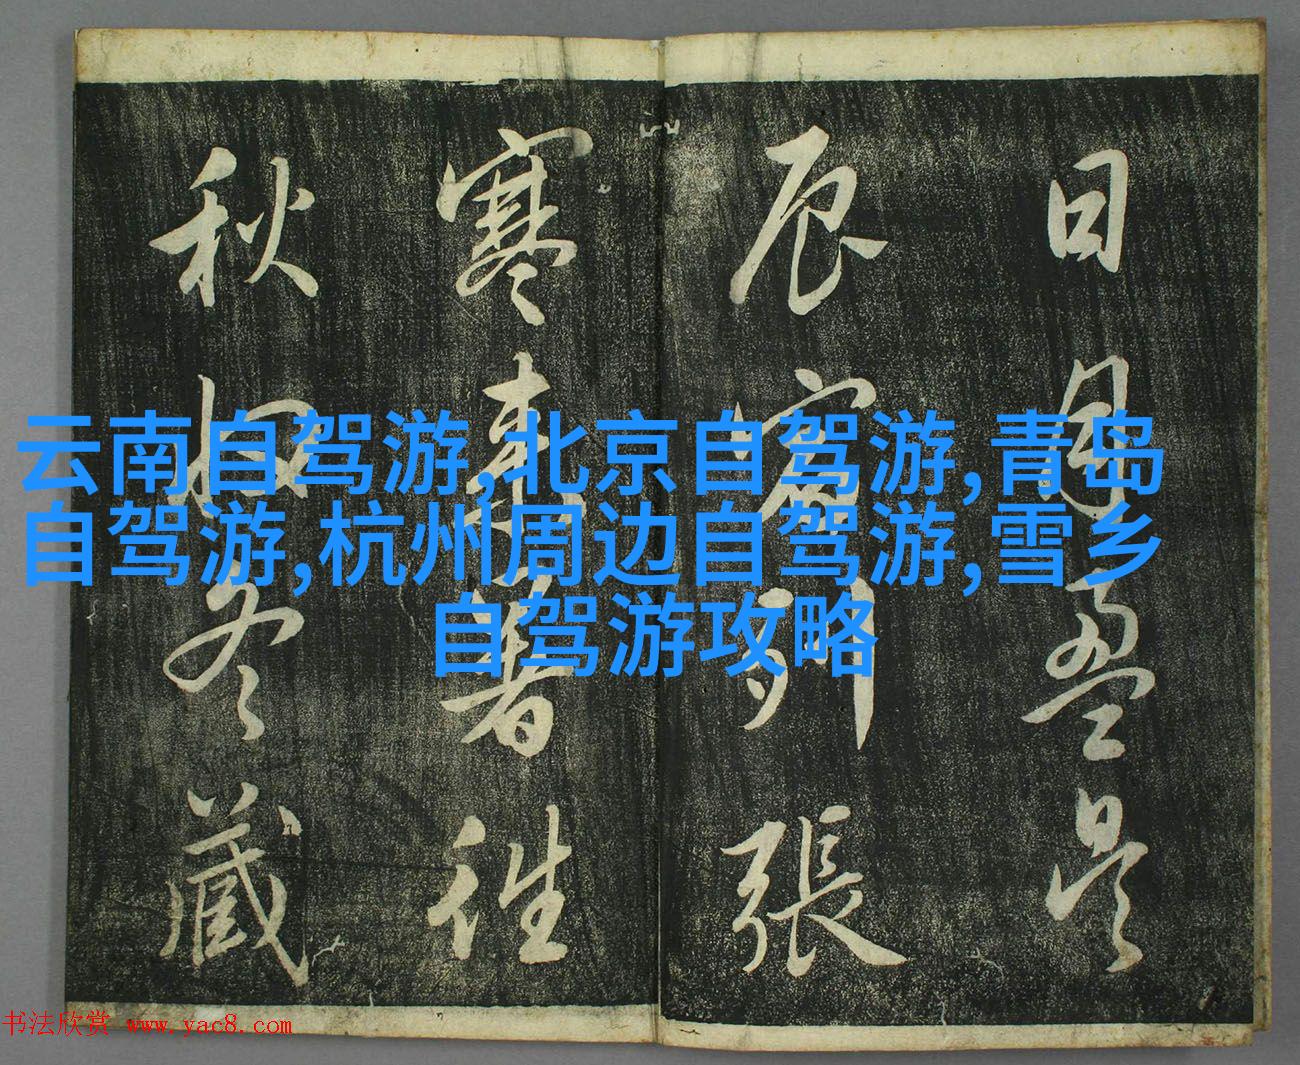 日月盈昃
辰宿列張
寒來暑往
秋收冬藏
云南自驾游,北京自驾游,青岛
自驾游,杭州周边自驾游,雪乡
自驾游攻略
书法欣赏 www.yac8.com